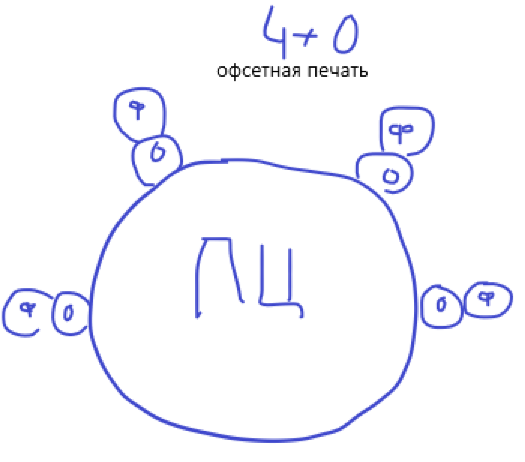 4+0
офсетная печать
Ф
Ф
О
О
ПЦ
Ф О
О Ф